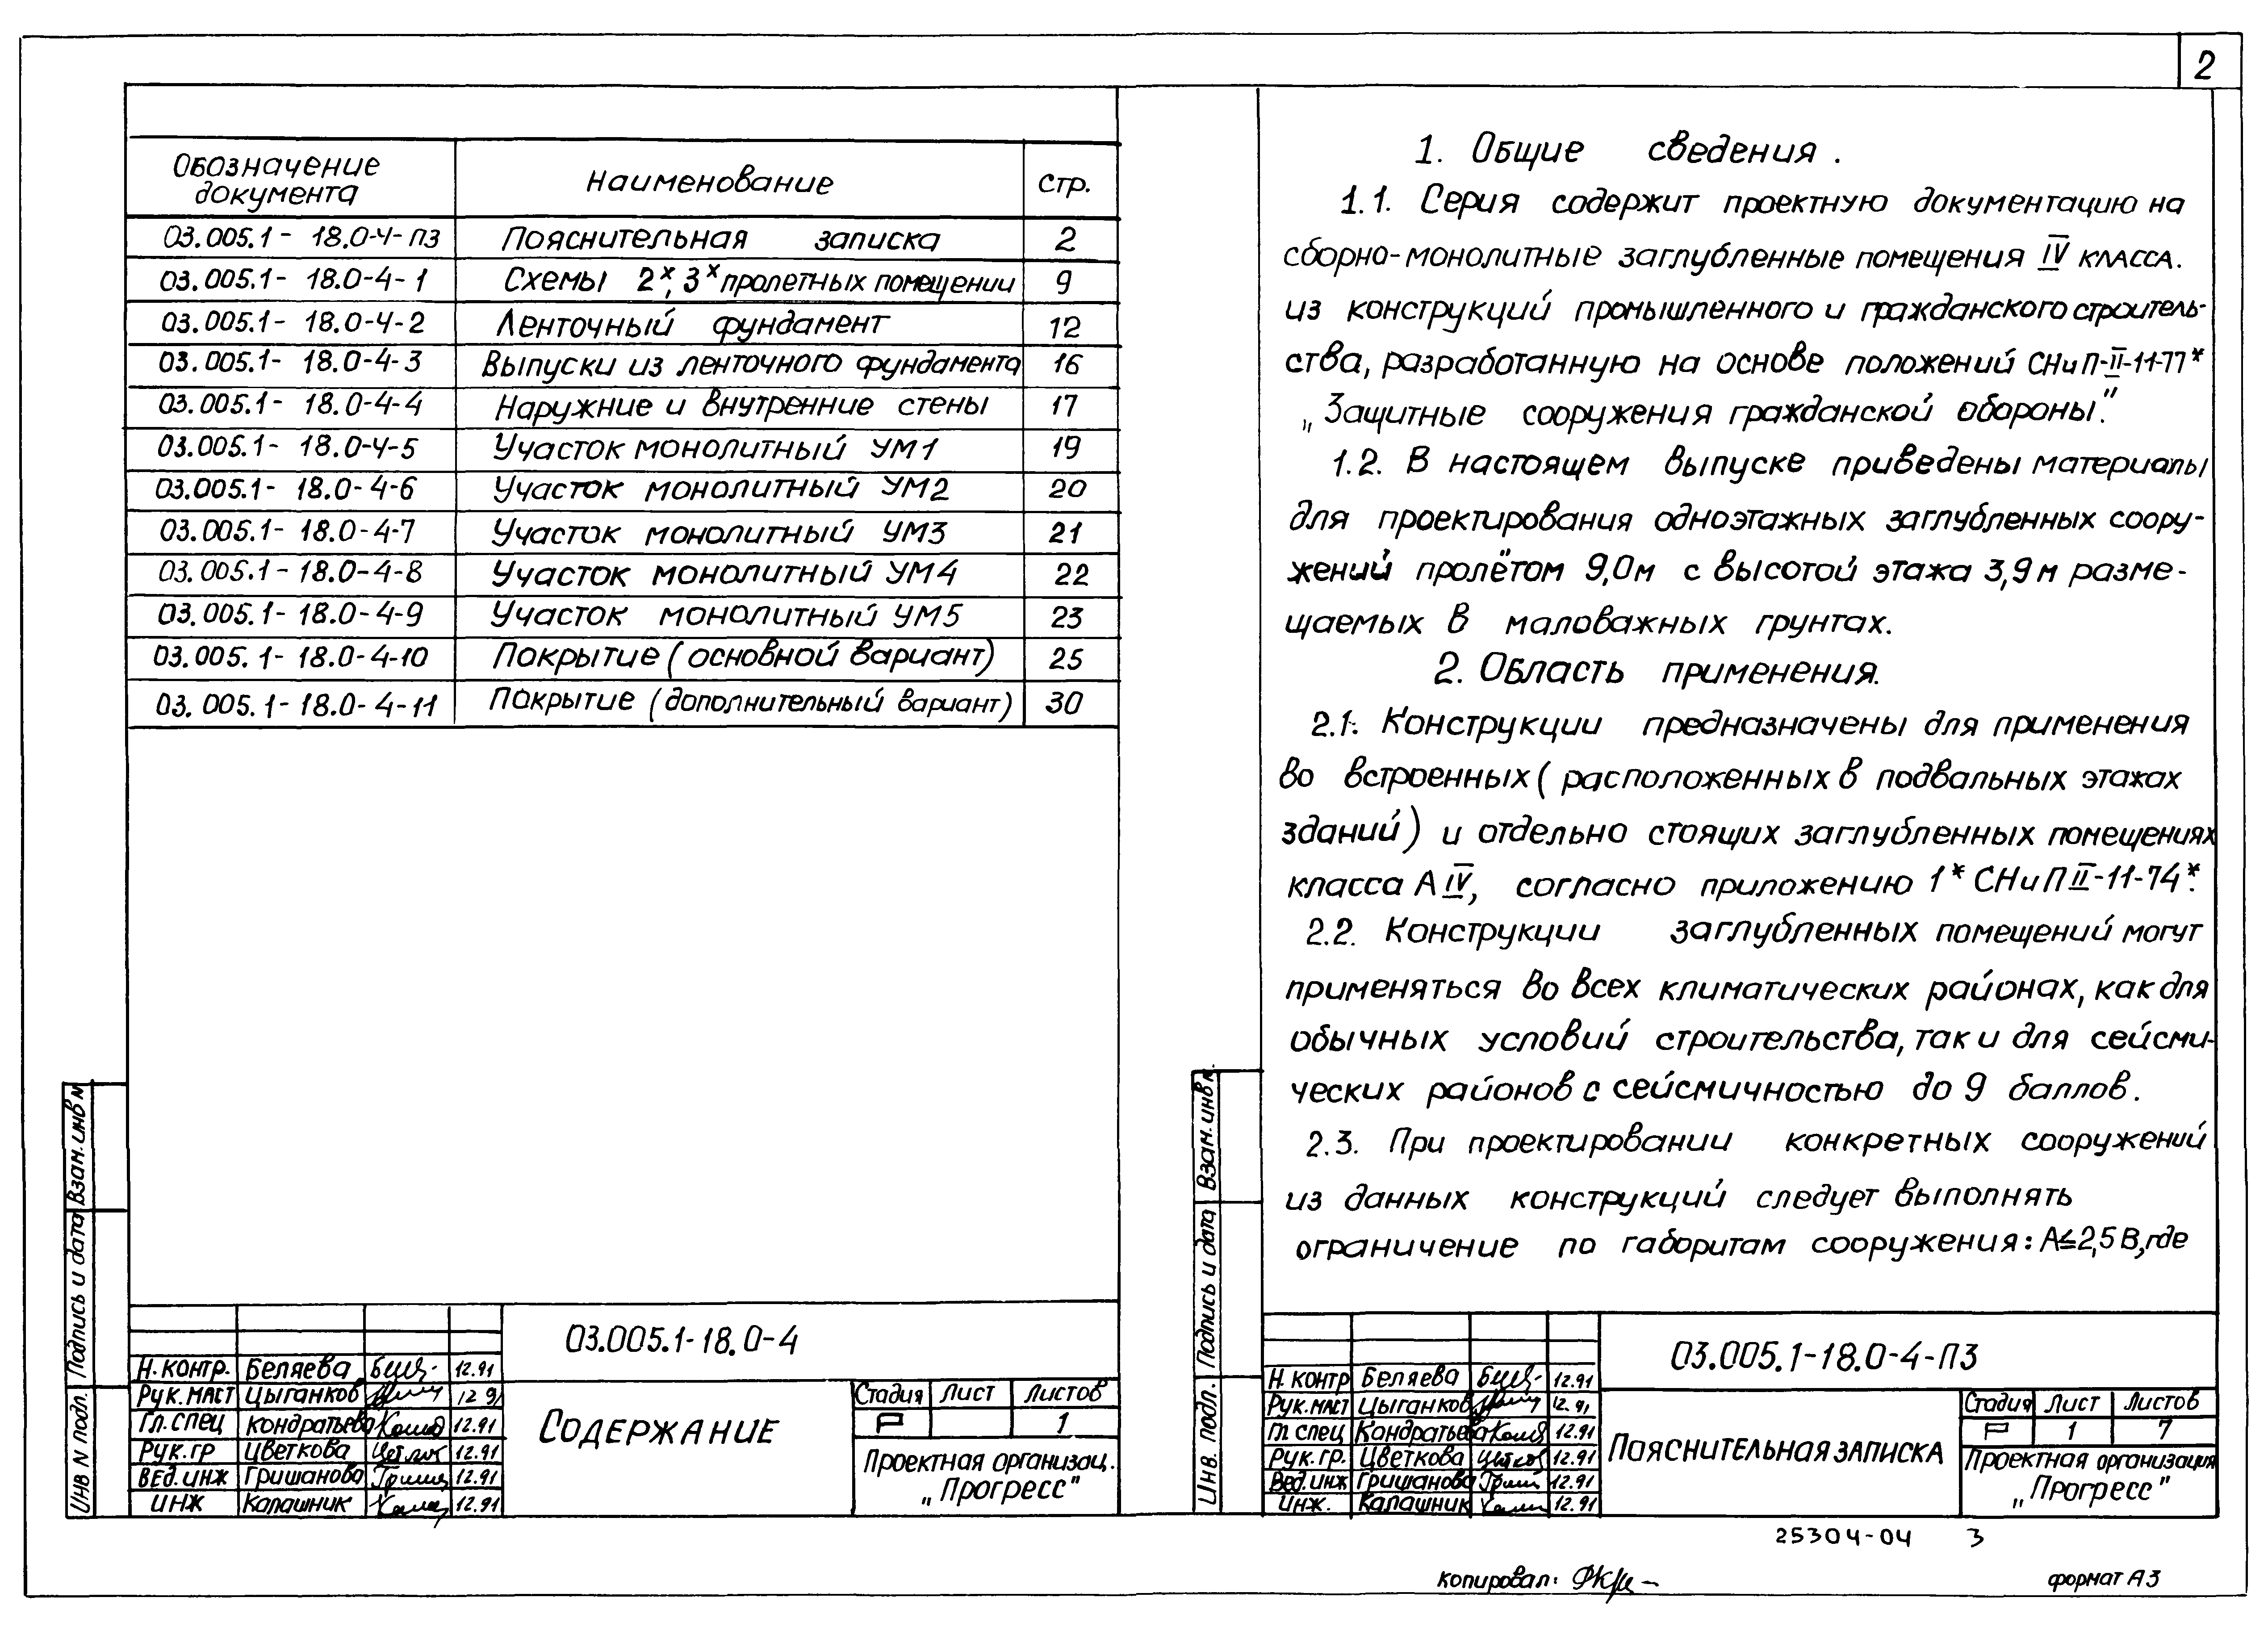 2
Обозначение документа Наименование стр.
03.005.1-18.0-4-ПЗ Пояснительная записка 2
03.005.1-18.0-4-1 Схемы 2х, 3х пролетных помещений 9
03.005.1-18.0-4-2 Ленточный фундамент 12
03.005.1-18.0-4-3 Выпуски из ленточного фундамента 16
03.005.1-18.0-4-4 Наружние и внутренние стены 17
03.005.1-18.0-4-5 Участок монолитный УМ1 19
03.005.1-18.0-4-6 Участок монолитный УМ2 20
03.005.1-18.0-4-7 Участок монолитный УМ3 21
03.005.1-18.0-4-8 Участок монолитный УМ4 22
03.005.1-18.0-4-9 Участок монолитный УМ5 23
03.005.1-18.0-4-10 Покрытие (основной вариант) 25
03.005.1-18.0-4-11 Покрытие (дополнительный вариант) 30
Взан. инв N
Подпись и дата
Инв N подл.
03.005.1-18.0-4
Н. контр. Беляева 12.91
Рук. маст Цыганков 12 91
Гл. спец Кондратьева 12.91
Рук. гр Цветкова 12.91
Вед. инж Гришанова 12.91
инж Калашник 12.91
Содержание
Стадия Лист Листов
Р 1
Проектная организац.
„Прогресс"
1. Общие сведения.
1.1. Серия содержит проектную документацию на
сборно-монолитные заглубленные помещения IV класса.
из конструкций промышленного и гражданского строитель-
ства, разработанную на основе положений СНиП-II-11-77*
„Защитные сооружения гражданской обороны".
1.2. В настоящем выпуске приведены материалы
для проектирования одноэтажных заглубленных соору-
жений пролётом 9,0м с высотой этажа 3,9м разме-
щаемых в маловажных грунтах.
2. Область применения.
2.1. Конструкции предназначены для применения
во встроенных (расположенных в подвальных этажах
зданий) и отдельно стоящих заглубленных помещениях
класса А IV, согласно приложению 1* СНиП II-11-74*.
2.2. Конструкции заглубленных помещений могут
применяться во всех климатических районах, как для
обычных условий строительства, так и для сейсми-
ческих районов с сейсмичностью до 9 баллов.
2.3. При проектировании конкретных сооружений
из данных конструкций следует выполнять
ограничение по габоритам сооружения: А≤2,5В, где
Взан. инв N.
Подпись и дата
Инв. N подл.
03.005.1-18.0-4-ПЗ
Н. контр Беляева 12.91
Рук. маст Цыганков 12.91
Гл спец Кондратьева 12.91
Рук. гр. Цветкова 12.91
Вед. инж Гришанова 12.91
инж. Калашник 12.91
Пояснительная записка
Стадия Лист Листов
Р 1 7
Проектная организация
„Прогресс"
25304-04 3
копировал:
формат А3